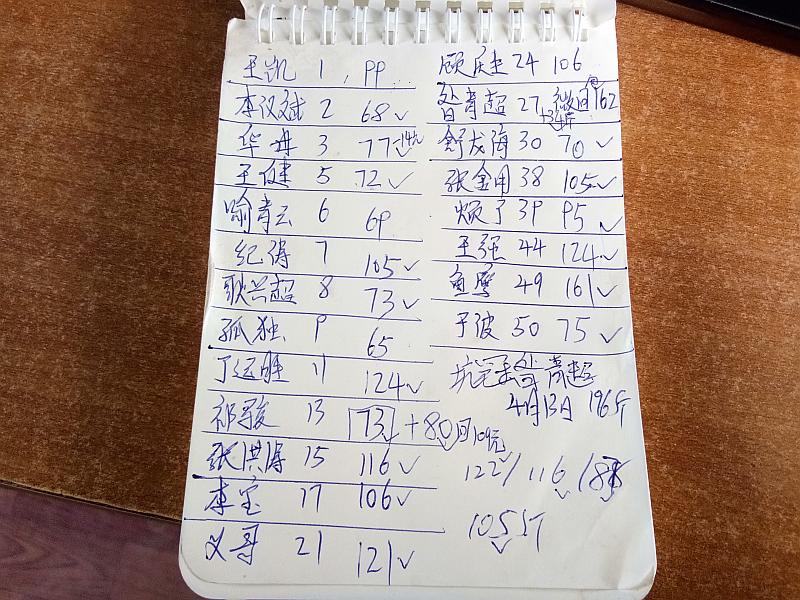 王凯 1 99
李汉斌 2 68✓
华进 3 77✓
王健 5 72✓
喻青云 6 69
纪涛 7 105✓
耿兴超 8 73✓
孤独 9 65
丁运胜 11 124✓
祁骏 13 73 +80✓回109元
张洪涛 15 116✓
李宝 17 106✓
义哥 21 121✓
顾庆 24 106
曾青超 27 微回162
+34斤
舒龙海 30 70✓
张金用 38 105✓
烦了 39 95✓
王强 44 124✓
鱼鹰 49 161✓
于波 50 75✓
曾青超
4月13日 196斤
122✓ 116✓
105斤✓